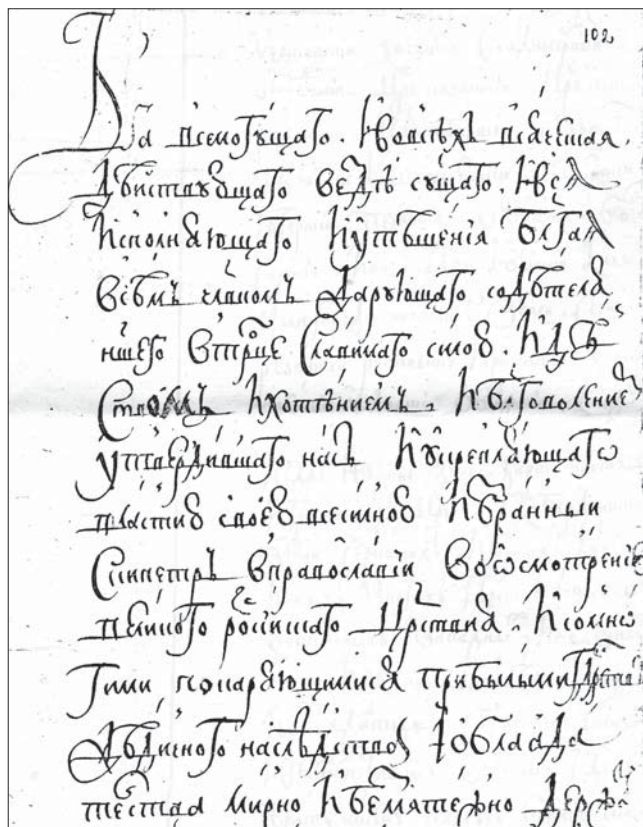 102
Бга всемогущаго. И во всѣхъ всяческая
дѣйствующаго вездѣ сущаго. И вся
исполняющаго и утѣшения блгая
всѣмъ члвкомъ дарующаго содѣтеля
ншего в трце славимаго силою. И дѣ
ством и хотѣнием. И блговоление
утвердившаго нас и укрепляющаго
властию своею всесилною избранныи
скипетръ в православии во осмотрение
великого росиского црствия. И со мно
гими покаряющимися прибылыми гдрствы
дѣдичного наслѣдства и облаада
телства мирно и безмятежно держа